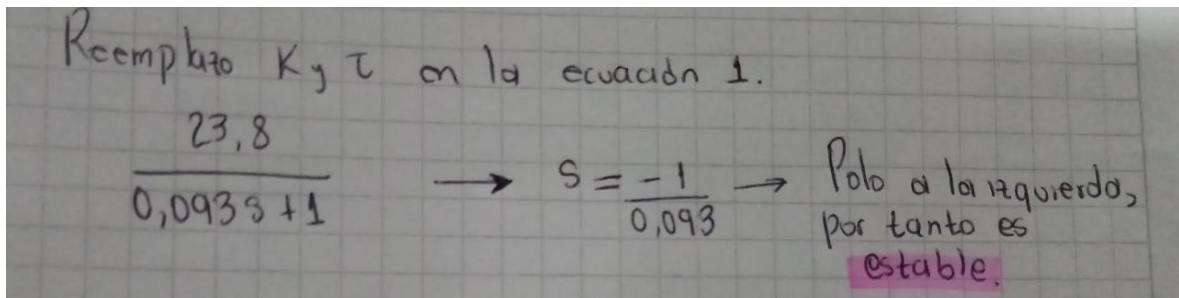 Reemplazo K y τ en la ecuación 1.
23,8 / 0,093s + 1 → S = -1 / 0,093 → Polo a la izquierda,
por tanto es
estable.